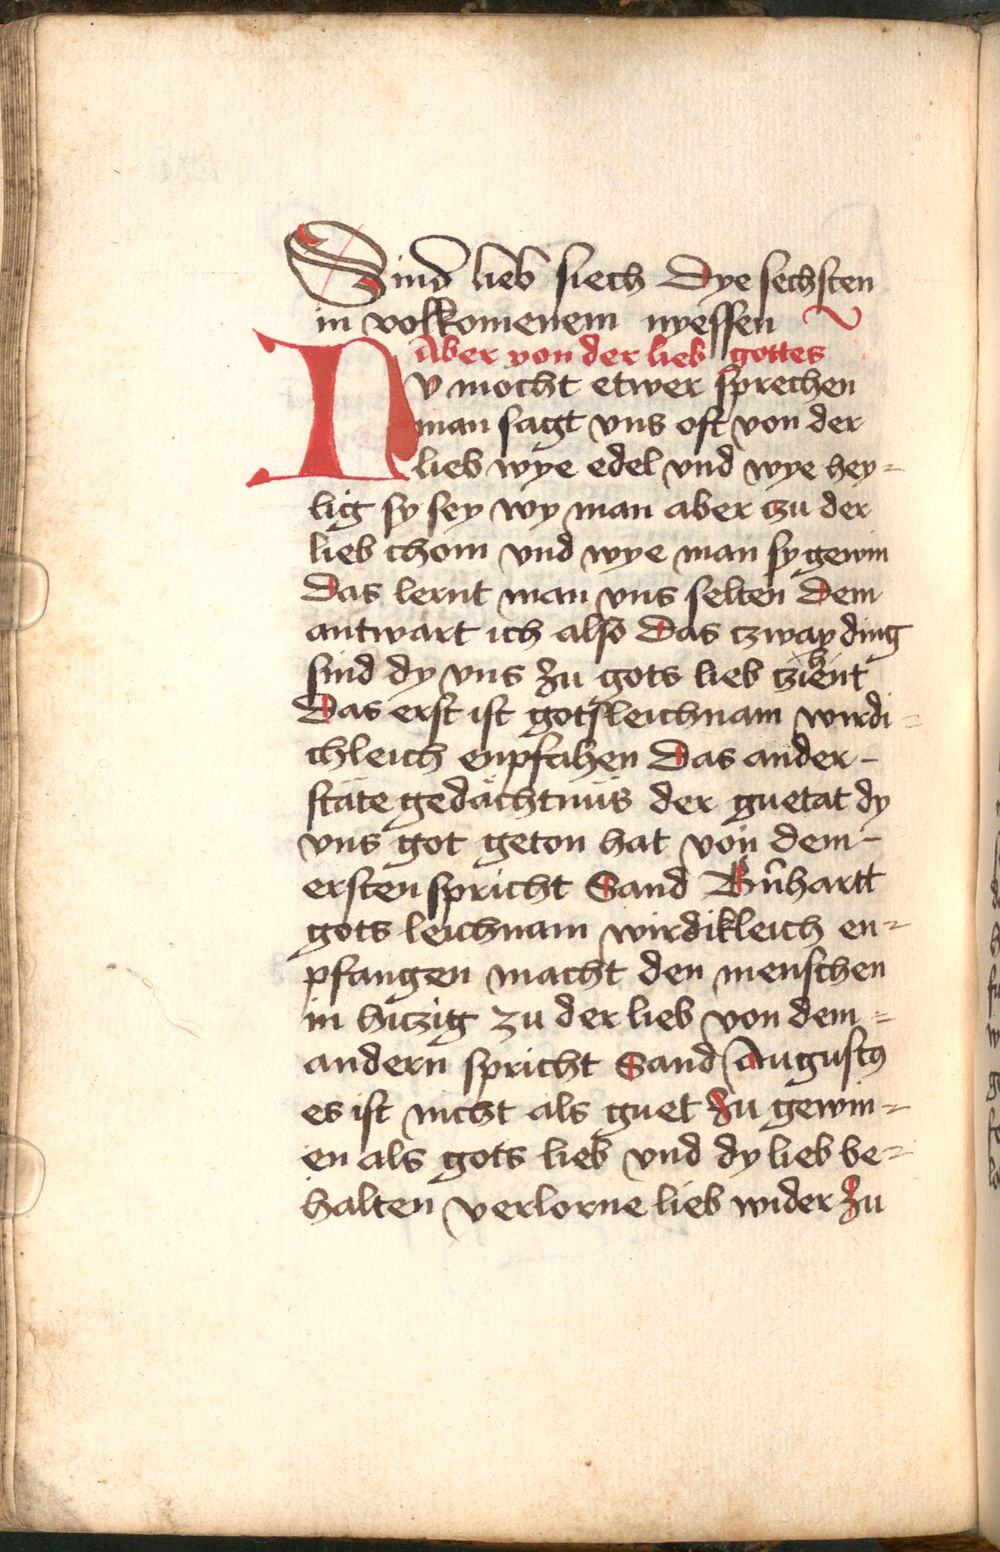 Sind lieb siech Dye sechsten
in volkomenem nyessen
Aber von der lieb gottes
Nv mocht etwer sprechen
man sagt vns oft von der
lieb wye edel vnd wye hey-
lig sy sey wy man aber czu der
lieb chom vnd wye man sy gewin
Das lernt man vns selten Dem
antwart ich also Das czway ding
sind dy vns zu gots lieb czihent
Das erst ist gotsleichnam wirdi-
chleich enpfahen Das ander -
stäte gedächtnüs der guetat dy
vns got geton hat von dem -
ersten spricht Sand Bernhartt
gots leichnam wirdikleich en-
pfangen macht den menschen
in hiczig zu der lieb von dem -
andern spricht Sand Augustus
es ist nicht als guet zu gewin-
en als gots lieb vnd dy lieb be-
halten verlorne lieb wider zu